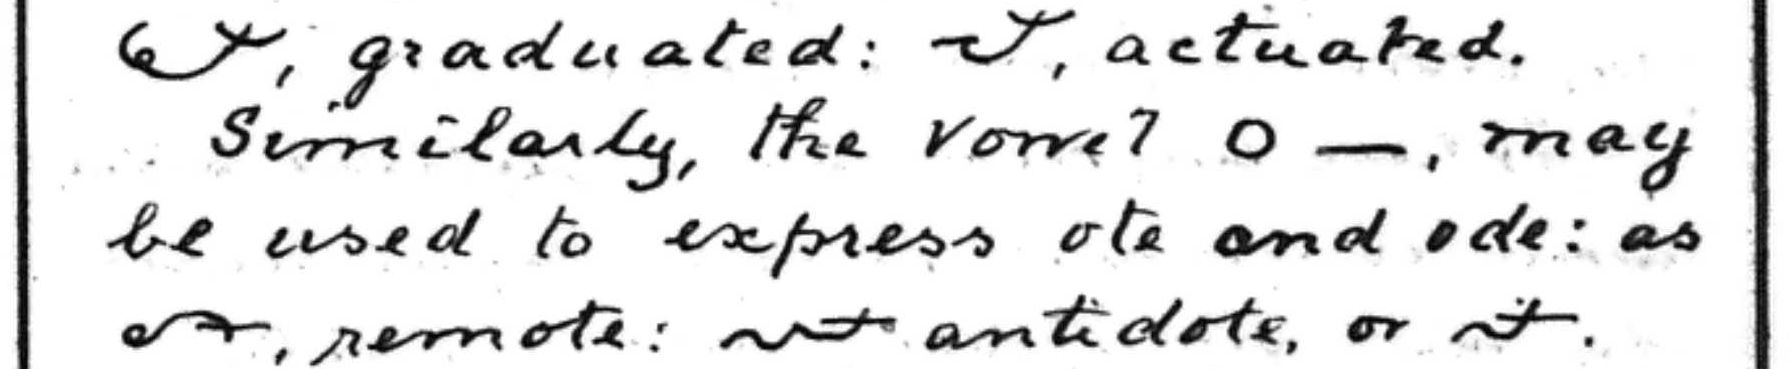 , graduated: , actuated.
Similarly, the vowel O —, may
be used to express ote and ode: as
, remote: antidote, or .